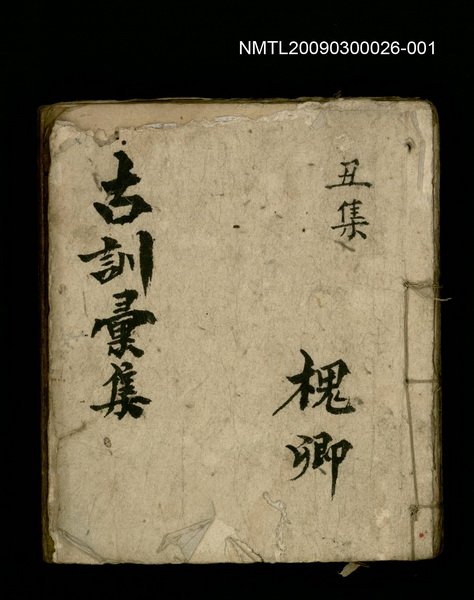 NMTL20090300026-001
丑集
槐卿
古訓彙集